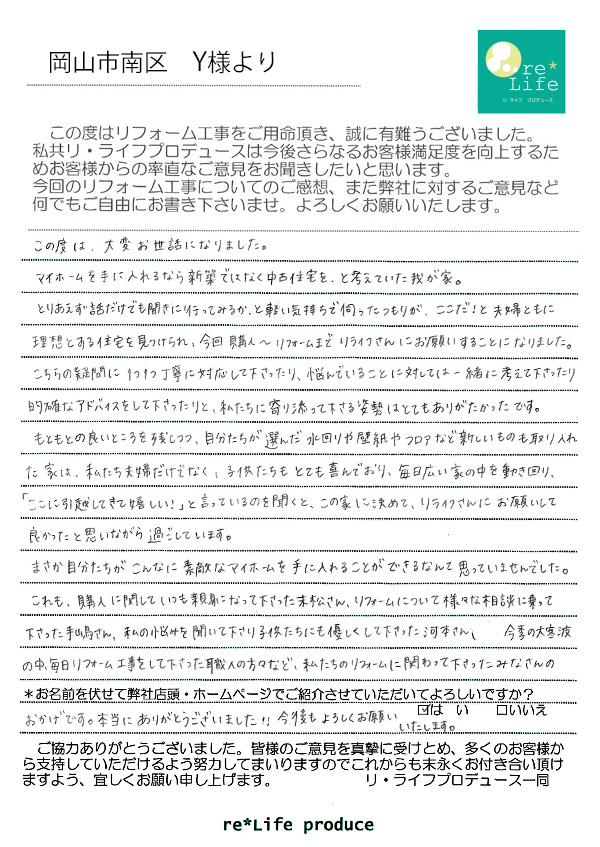 岡山市南区　Y様より
re*
Life
リ・ライフ　プロデュース
この度はリフォーム工事をご用命頂き、誠に有難うございました。
私共リ・ライフプロデュースは今後さらなるお客様満足度を向上するた
めお客様からの率直なご意見をお聞きしたいと思います。
今回のリフォーム工事についてのご感想、また弊社に対するご意見など
何でもご自由にお書き下さいませ。よろしくお願いいたします。
この度は、大変お世話になりました。
マイホームを手に入れるなら新築ではなく中古住宅を、と考えていた我が家。
とりあえず話だけでも聞きに行ってみるか、と軽い気持ちで伺ったつもりが、ここだ！と夫婦ともに
理想とする住宅を見つけられ、今回購入～リフォームまでリライフさんにお願いすることになりました。
こちらの疑問に1つ1つ丁寧に対応して下さったり、悩んでいることに対しては一緒に考えて下さったり
的確なアドバイスをして下さったりと、私たちに寄り添って下さる姿勢はとてもありがたかったです。
もともとの良いところを残しつつ、自分たちが選んだ水回りや壁紙やフロアなど新しいものも取り入れ
た家は、私たち夫婦だけでなく、子供たちもとても喜んでおり、毎日広い家の中を動き回り、
「ここに引越してきて嬉しい！」と言っているのを聞くと、この家に決めて、リライフさんにお願いして
良かったと思いながら過ごしています。
まさか自分たちがこんなに素敵なマイホームを手に入れることができるなんて思っていませんでした。
これも、購入に関していつも親身になって下さった末松さん、リフォームについて様々な相談に乗って
下さった手嶋さん、私の悩みを聞いて下さり子供たちにも優しくして下さった河本さん、今季の大寒波
の中、毎日リフォーム工事をして下さった職人の方々など、私たちのリフォームに関わって下さったみなさんの
＊お名前を伏せて弊社店頭・ホームページでご紹介させていただいてよろしいですか？
☑は　い　　□いいえ
おかげです。本当にありがとうございました!! 今後もよろしくお願い
いたします。
ご協力ありがとうございました。皆様のご意見を真摯に受けとめ、多くのお客様か
ら支持していただけるよう努力してまいりますのでこれからも末永くお付き合い頂け
ますよう、宜しくお願い申し上げます。　　　　　　リ・ライフプロデュース一同
re*Life produce